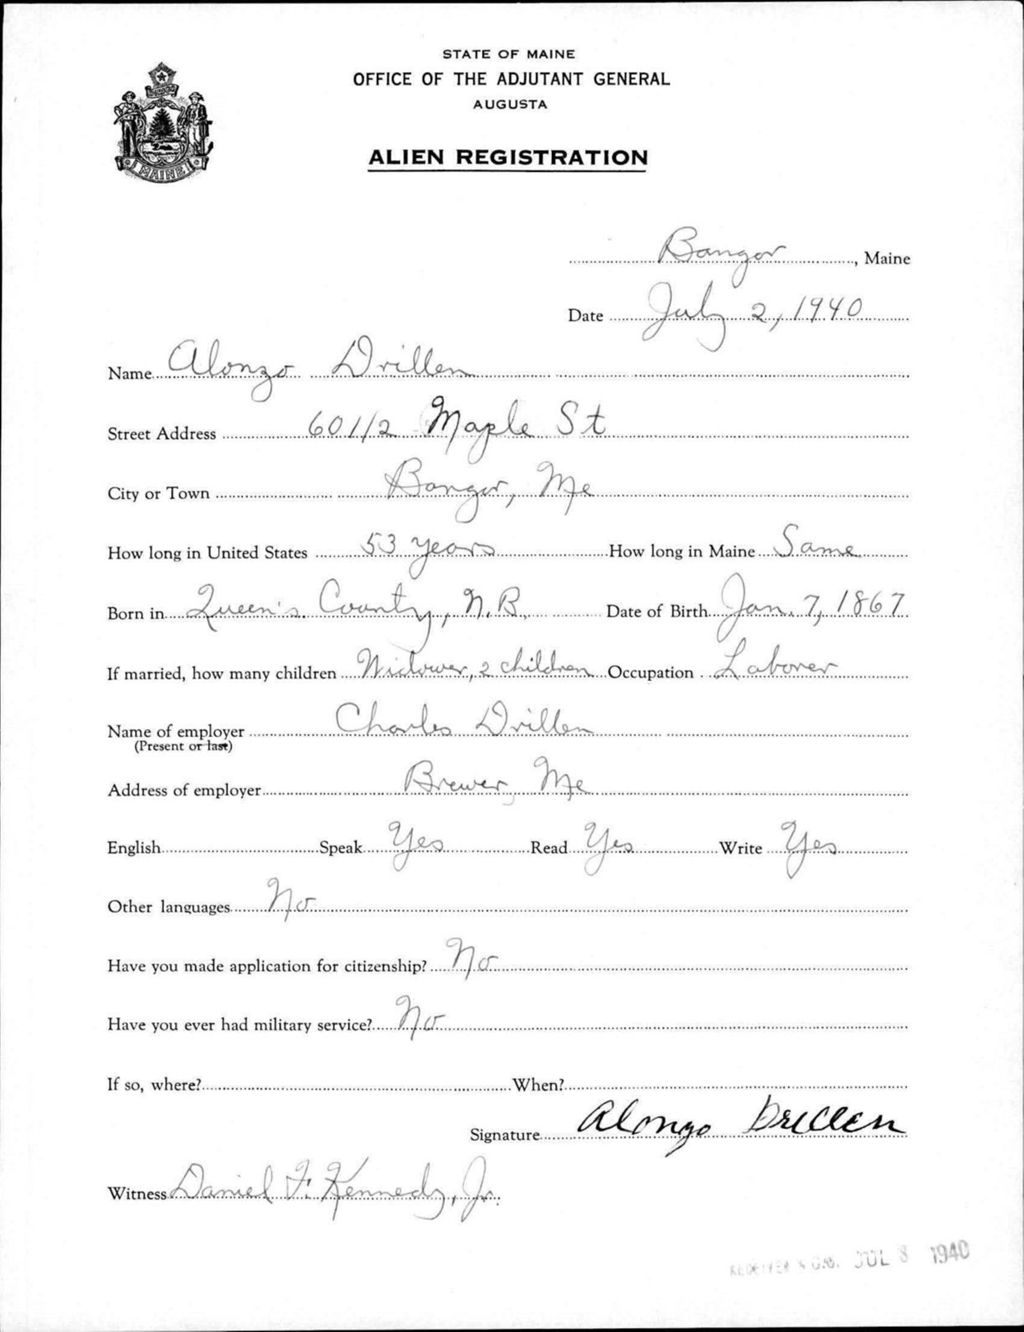 STATE OF MAINE
OFFICE OF THE ADJUTANT GENERAL
AUGUSTA
MAINE
ALIEN REGISTRATION
Bangor, Maine
Date July 2, 1940
Name Alonzo Drillen
Street Address 60 1/2 Maple St
City or Town Bangor, Me
How long in United States 53 years How long in Maine Same
Born in Queen's County, N.B. Date of Birth Jan. 7, 1867
If married, how many children Widower, 2 children Occupation Laborer
Name of employer Charles Drillen
(Present or last)
Address of employer Brewer, Me
English Speak Yes Read Yes Write Yes
Other languages No
Have you made application for citizenship? No
Have you ever had military service? No
If so, where? When?
Signature Alonzo Drillen
Witness Daniel F. Kennedy, Jr.
JUL 8 1940